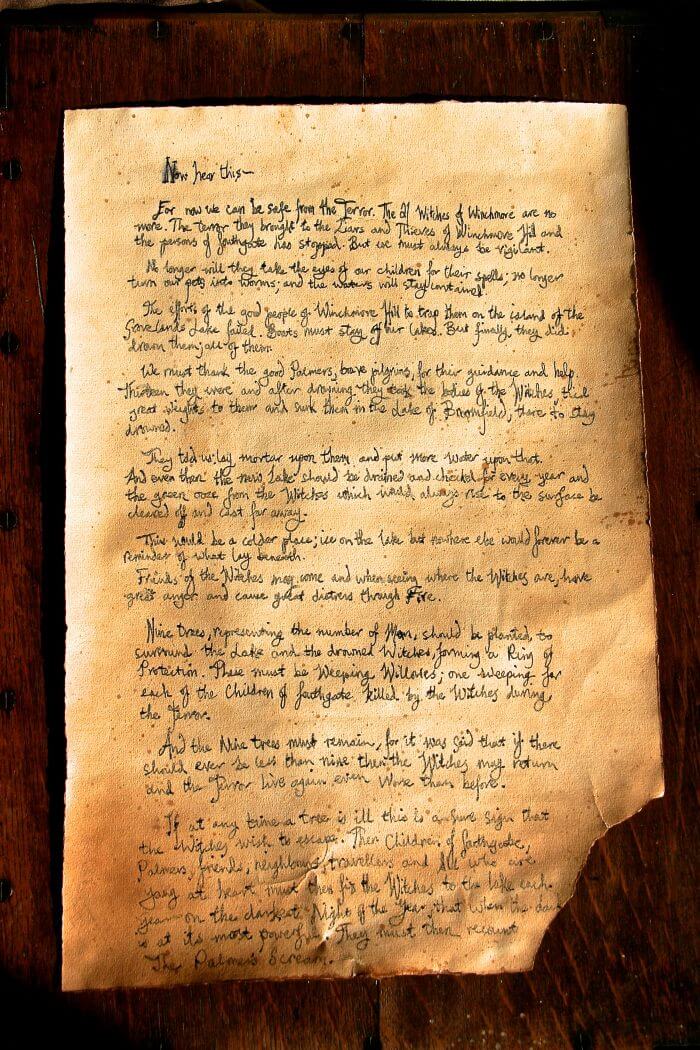 Now hear this~
For now we can be safe from the Terror. The 21 Witches of Winchmore are no
more. The terror they brought to the Liars and Thieves of Winchmore Hill and
the persons of Southgate has stopped. But we must always be vigilant.
No longer will they take the eyes of our children for their spells; no longer
turn our pets into worms; and the waters will stay contained.
The efforts of the good people of Winchmore Hill to trap them on the island of the
Grovelands Lake failed. Boats must stay off our lakes. But finally, they did
drown them; all of them.
We must thank the good Palmers, brave pilgrims, for their guidance and help.
Thirteen they were and after drowning they took the bodies of the Witches, tied
great weights to them and sunk them in the Lake of Broomfield, there to stay
drowned.
They told us lay mortar upon them and put more water upon that.
And even then the new lake should be drained and checked for every year and
the green ooze from the Witches which would always rise to the surface be
cleared off and cast far away.
This would be a colder place; ice on the lake but nowhere else would forever be a
reminder of what lay beneath.
Friends of the Witches may come and when seeing where the Witches are, have
great anger and cause great distress through Fire.
Nine trees, representing the number of Man, should be planted, to
surround the Lake and the drowned Witches, forming a Ring of
Protection. These must be Weeping Willows; one weeping for
each of the Children of Southgate killed by the Witches during
the Terror.
And the Nine trees must remain, for it was said that if there
should ever be less than nine then the Witches may return
and the Terror live again even worse than before.
If at any time a tree is ill this is a sure sign that
the Witches wish to escape. Then Children of Southgate,
Palmers, friends, neighbours, travellers and All who are
yong at heart must then fix the Witches to the lake each
year on the darkest Night of the Year, that when the dark
is at its most powerful. They must then recount
The Palmers Scream.